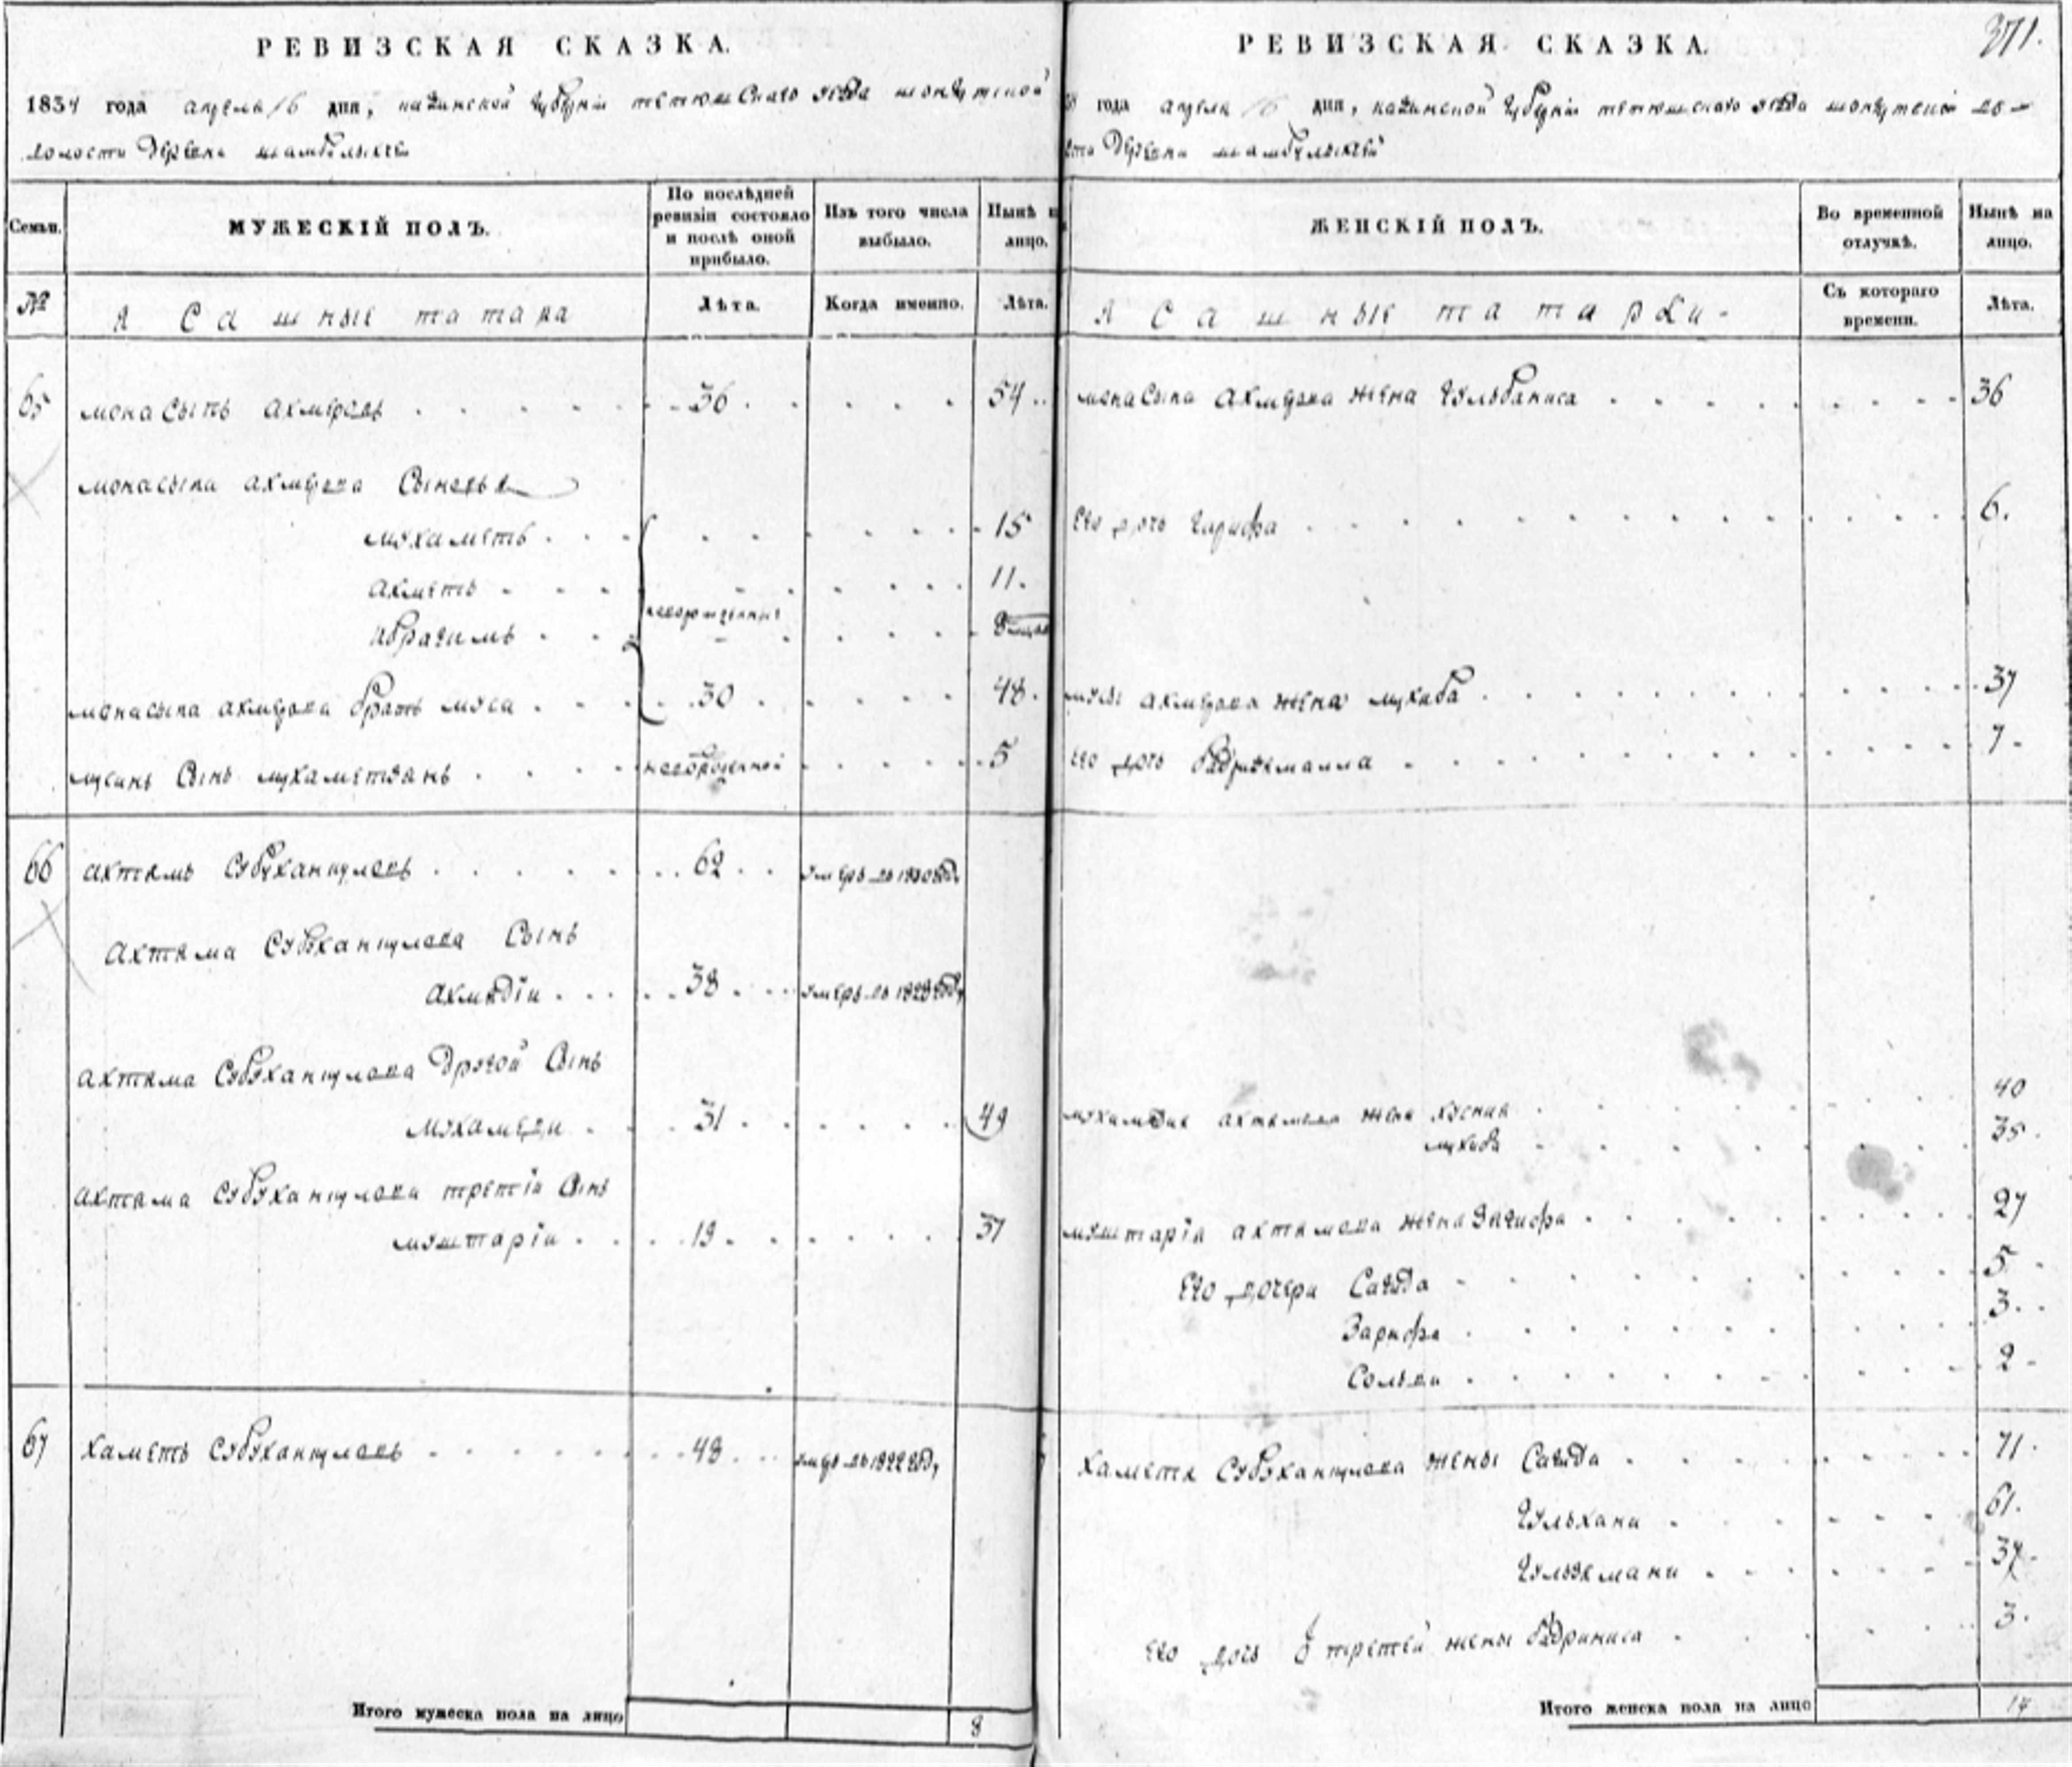 РЕВИЗСКАЯ СКАЗКА.
1834 года апреля 16 дня, казанской губернии тетюшскаго уезда монкутской
волости деревни шамбулыхчи
Семьи. МУЖЕСКІЙ ПОЛЪ. По послѣдней ревизіи состояло и послѣ оной прибыло. Изъ того числа выбыло. Нынѣ на лицо.
№ Ясашные татара Лѣта. Когда именно. Лѣта.
65 монасыпъ ахмеровъ 36 54
монасыпа ахмерова сыновья
мухаметь 15
ахметь 11.
новорожденные
ибрагимъ
монасыпа ахмерова братъ муса 30 48.
мусинъ сынъ мухаметзянъ новорожденной 5
66 ахтямъ субуханкуловъ 62 умеръ въ 1830 году
Ахтяма субуханкулова сынъ
ахмядіи 38 умеръ въ 1828 году
ахтяма субуханкулова другой сынъ
мухамеди 31 49
ахтяма субуханкулова третіи сынъ
муштаріи 19 37
67 хаметь субуханкуловъ 48 умеръ въ 1822 году
Итого мужеска пола на лицо 8
РЕВИЗСКАЯ СКАЗКА. 371.
года апреля 16 дня, казанской губерніи тетюшскаго уезда монкутской во-
сти деревни шамбулыхчи
ЖЕНСКІЙ ПОЛЪ. Во временной отлучкѣ. Нынѣ на лицо.
Ясашные татарки Съ котораго времени. Лѣта.
монасыпа ахмерова жена гульбаниса 36
Его дочь гарифа 6.
мусы ахмерова жена мухиба 37
его дочь бадризямалла 7
мухамедия ахтямова жена хусния 40
мухиба 35
муштарія ахтямова жена загифа 27
Его дочери Сагида 5
Зарифа 3
Сольви 2
Хаметя субуханкулова жены Сагида 71.
Гульхани 61.
Гульзямани 37
его дочь о третей жены бадриниса 3.
Итого женска пола на лицо 14